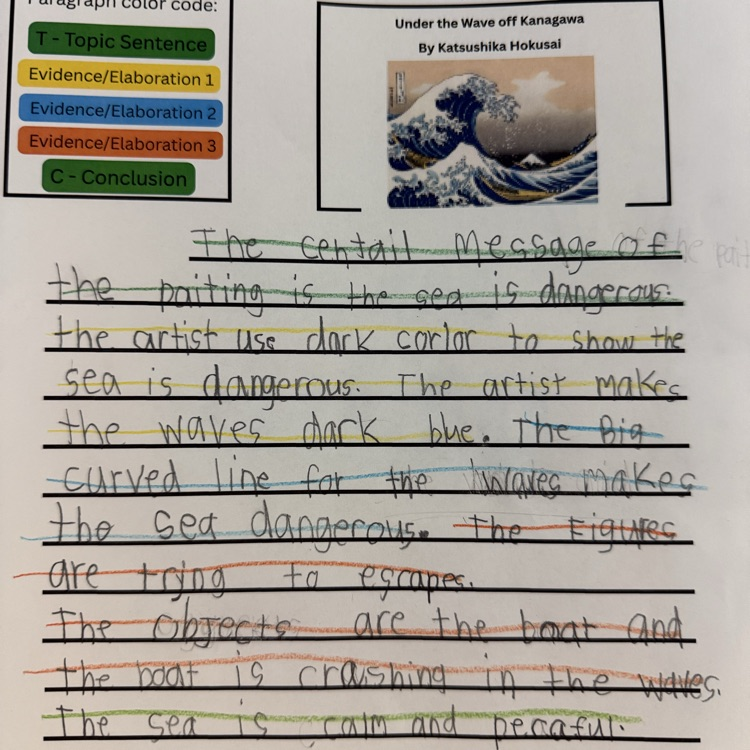 Paragraph color code:
T - Topic Sentence
Evidence/Elaboration 1
Evidence/Elaboration 2
Evidence/Elaboration 3
C - Conclusion
Under the Wave off Kanagawa
By Katsushika Hokusai
The centail Message of
the paiting is the sea is dangerous.
the artist use dark corlor to show the
sea is dangerous. The artist makes
the waves dark blue. The Big
curved line for the waves makes
the sea dangerous. The Figures
are trjng to egrapes.
The objects are the boat and
the boat is crashing in the waves.
The sea is calm and pecaful.